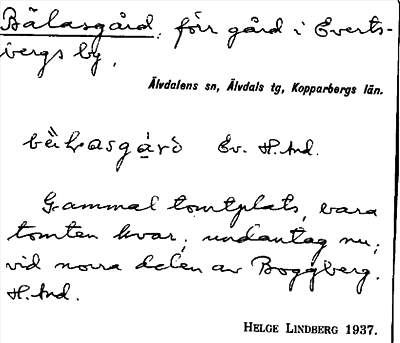 Bälasgård, förr gård i Everts-
bergs by.
Älvdalens sn, Älvdals tg, Kopparbergs län.
Ev. H. And.
Gammal tomtplats, bara
tomten kvar, undantag nu;
vid norra delen av Boggberg.
H. And.
HELGE LINDBERG 1937.